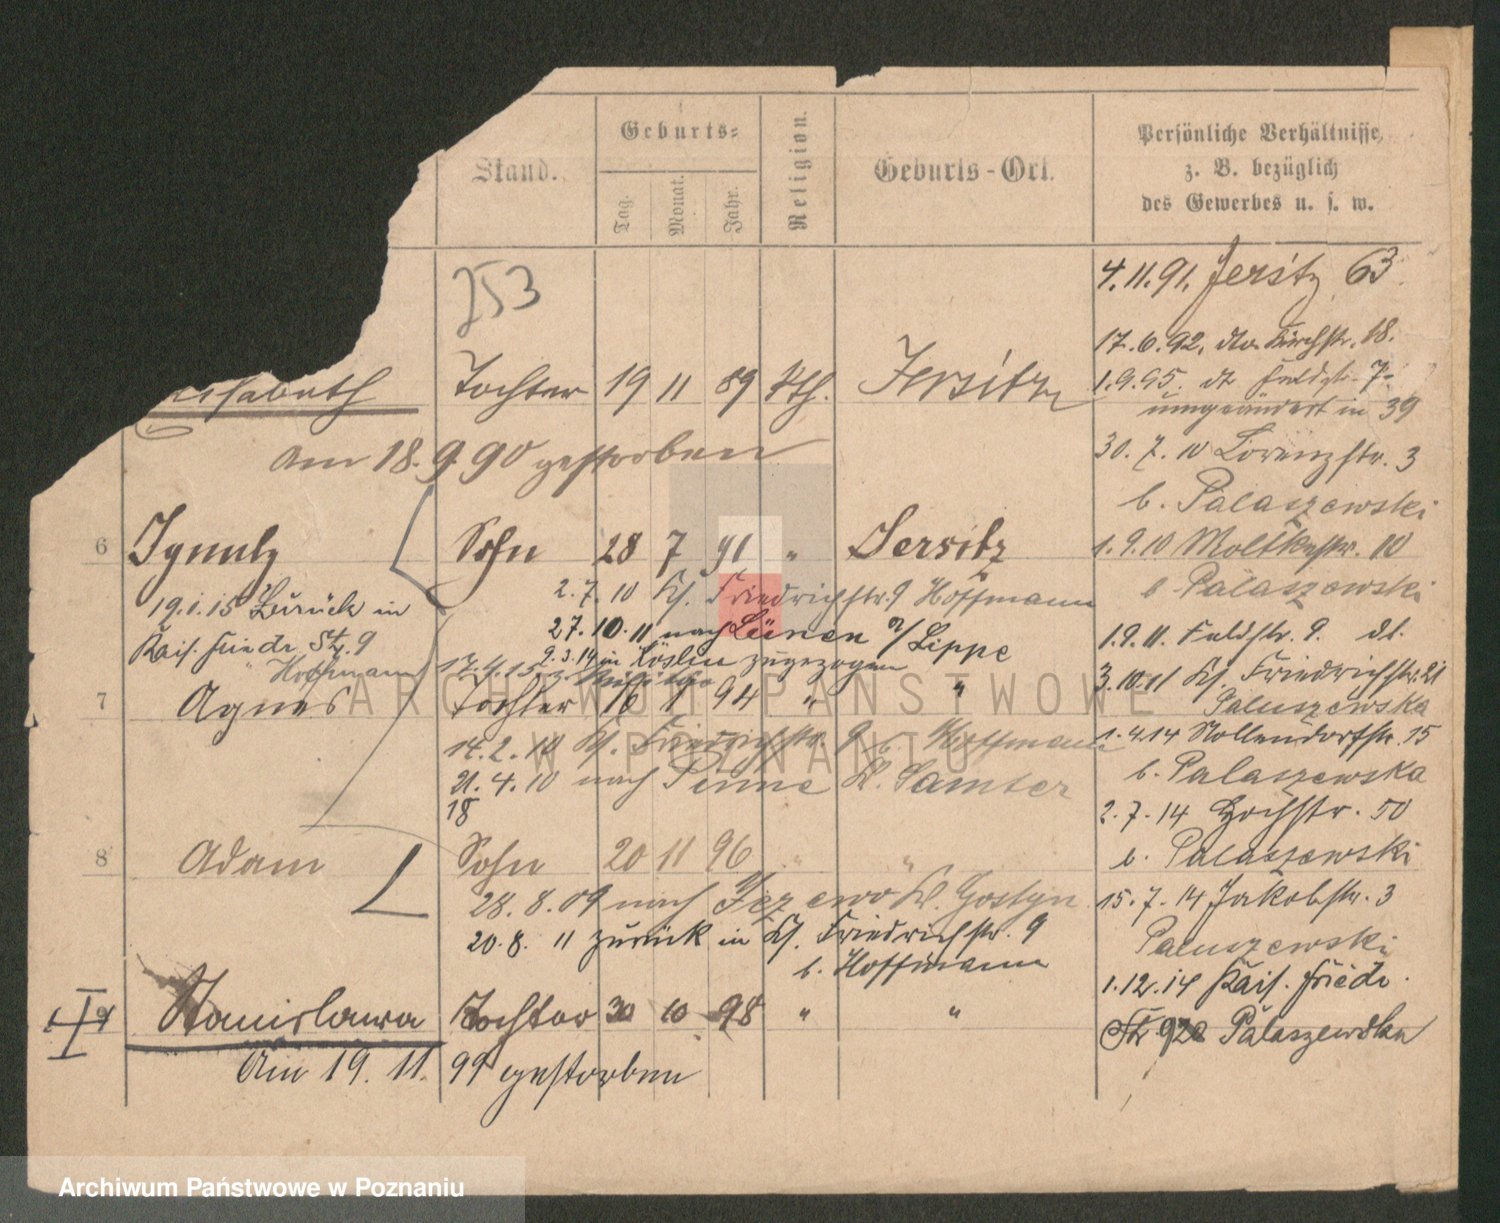 Stand.
Geburts-
Tag.
Monat.
Jahr.
Religion.
Geburts-Ort.
Persönliche Verhältnisse,
z. B. bezüglich
des Gewerbes u. s. w.
253
4.11.91. Jersitz 63.
17.6.92. dto. Kirchstr. 18.
Tochter 19 11 89 kth. Jersitz
1.9.95. dt Feldstr. 7-
umgeändert in 39
am 18.9.90 gestorben
30.7.10 Lorenzstr. 3
b. Palaszewski
6 Ignatz Sohn 28 7 91 " Jersitz
1.9.10 Moltkestr. 10
b Palaszewski
19.1.15 Zurück in
Kais. Friedr. Str. 9
" Hoffmann
2.7.10 Kf. Friedrichstr. 9 Hoffmann
27.10.11 nach Lünen a/Lippe
9.3.14 in Köslin zugezogen
17.4.15 z. Militär
1.9.11. Feldstr. 9. dt.
3.10.11 Kf. Friedrichstr. 21
Paluszewska
7 Agnes Tochter 16 1 94 " "
14.2.10 Kf. Friedrichstr. 9 b. Hoffmann
21.4.10 nach Pinne K. Samter
18
1.4.14 Nollendorfstr. 15
b. Palaszewska
2.7.14 Hochstr. 50
b. Palaszewski
8 Adam Sohn 20 11 96 " "
28.8.09 nach Jezewo K. Gostyn
20.8.11 zurück in Kf. Friedrichstr. 9
b. Hoffmann
15.7.14 Jakobstr. 3
Paluszewski
1.12.14 Kais. Friedr.
Str 92a Palaszewska
9 Stanislawa Tochter 30 10 98 " "
Am 19.11.99 gestorben
ARCHIWUM PAŃSTWOWE
W POZNANIU
Archiwum Państwowe w Poznaniu